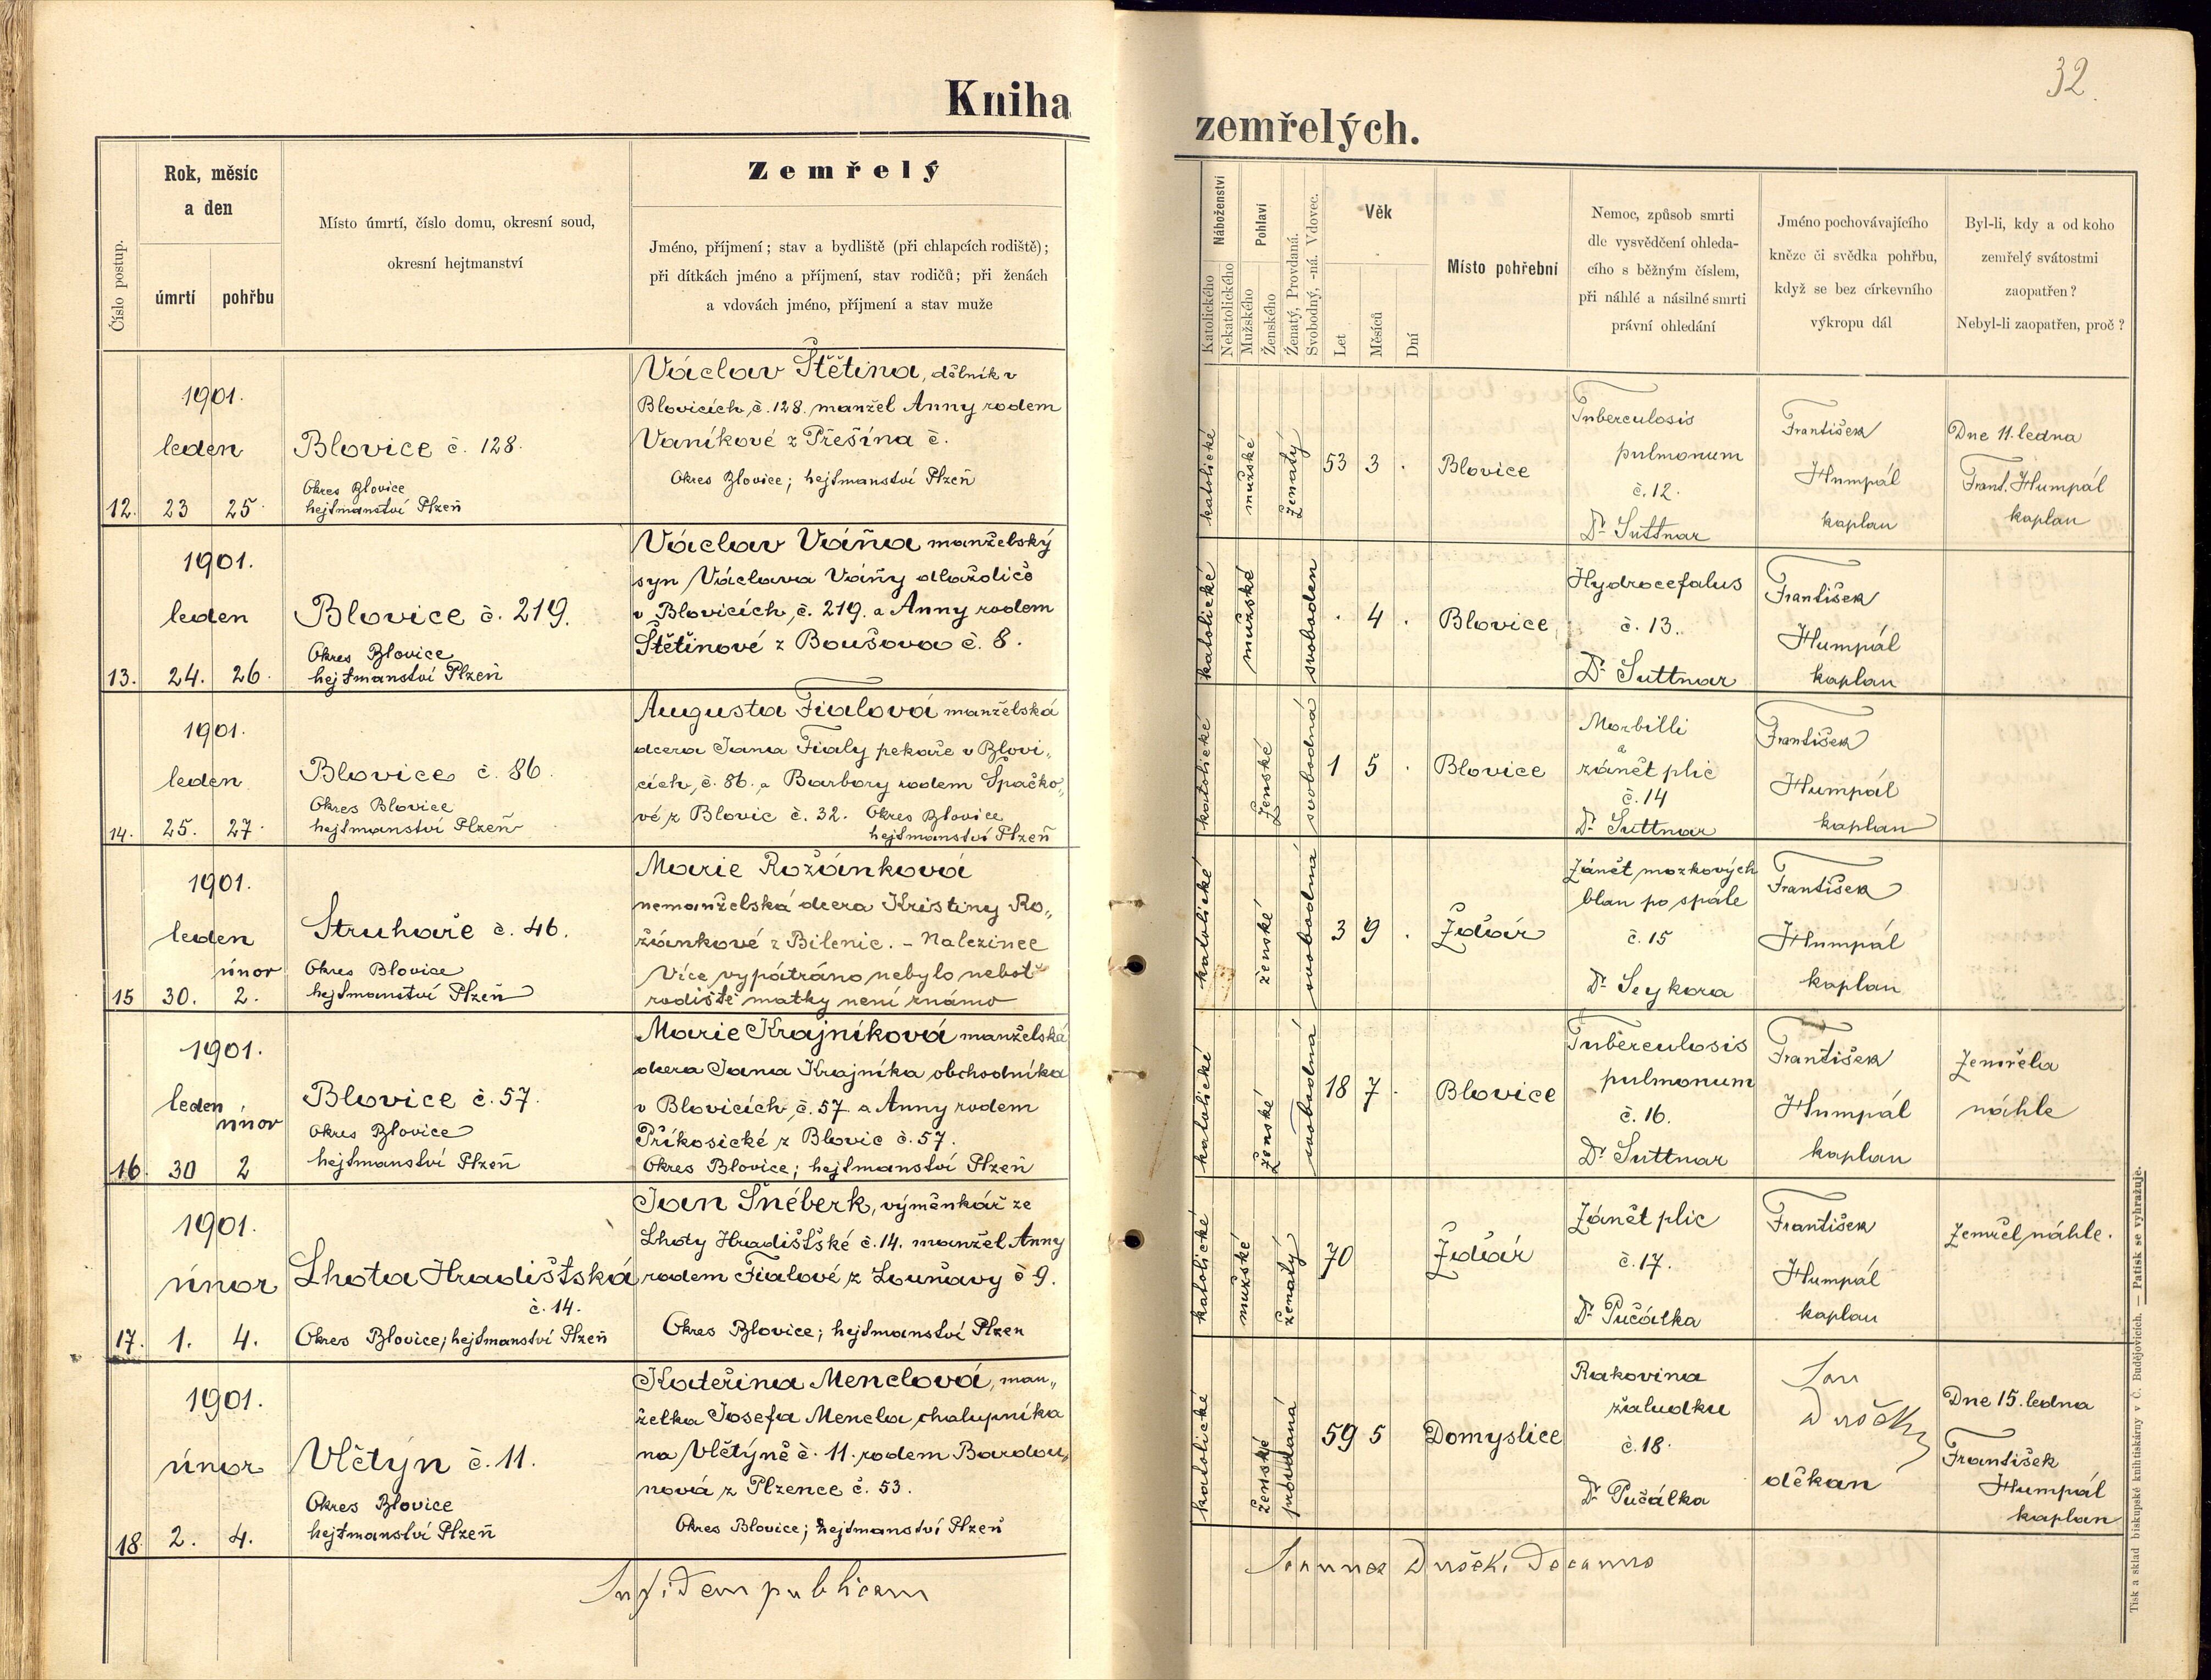 32.
Kniha zemřelých.
Číslo postup.
Rok, měsíc
a den
úmrtí
pohřbu
Místo úmrtí, číslo domu, okresní soud,
okresní hejtmanství
Zemřelý
Jméno, příjmení; stav a bydliště (při chlapcích rodiště);
při dítkách jméno a příjmení, stav rodičů; při ženách
a vdovách jméno, příjmení a stav muže
Náboženství
Katolického
Nekatolického
Pohlaví
Mužského
Ženského
Ženatý, Provdaná.
Svobodný, -ná. Vdovec.
Věk
Let
Měsíců
Dní
Místo pohřební
Nemoc, způsob smrti
dle vysvědčení ohleda-
cího s běžným číslem,
při náhlé a násilné smrti
právní ohledání
Jméno pochovávajícího
kněze či svědka pohřbu,
když se bez církevního
výkropu dál
Byl-li, kdy a od koho
zemřelý svátostmi
zaopatřen?
Nebyl-li zaopatřen, proč?
12.
1901.
leden
23
25.
Blovice č. 128.
Okres Blovice
hejtmanství Plzeň
Václav Štětina, dělník v
Blovicích, č. 128. manžel Anny rodem
Vaníkové z Přešína č.
Okres Blovice; hejtmanství Plzeň
katolické
mužské
Ženatý
53 3 .
Blovice
Tuberculosis
pulmonum
č. 12.
Dr. Suttnar
František
Humpál
kaplan
Dne 11. ledna
Frant. Humpál
kaplan
13.
1901.
leden
24.
26.
Blovice č. 219.
Okres Blovice
hejtmanství Plzeň
Václav Váňa manželský
syn Václava Váňy dlaždiče
v Blovicích, č. 219. a Anny rodem
Štětinové z Boušova č. 8.
katolické
mužské
svoboden
. 4 .
Blovice
Hydrocefalus
č. 13.
Dr. Suttnar
František
Humpál
kaplan
14.
1901.
leden
25.
27.
Blovice č. 86.
Okres Blovice
hejtmanství Plzeň
Augusta Fialová manželská
dcera Jana Fialy pekaře v Blovi„
cích, č. 86., a Barbory rodem Špačko„
vé z Blovic č. 32. Okres Blovice
hejtmanství Plzeň
katolické
Ženské
svobodná
1 5 .
Blovice
Morbilli
a
zánět plic
č. 14
Dr. Suttnar
František
Humpál
kaplan
15
1901.
leden
únor
30.
2.
Struhaře č. 46.
Okres Blovice
hejtmanství Plzeň
Marie Rožánková
nemanželská dcera Kristiny Ro„
žánkové z Bilenic. - Nalezinec
Více vypátráno nebylo neboť
rodiště matky není známo
katolické
ženské
svobodná
3 9 .
Ždár
Zánět mozkových
blan po spále
č. 15
Dr. Seykora
František
Humpál
kaplan
16.
1901.
leden
únor
30
2
Blovice č. 57.
Okres Blovice
hejtmanství Plzeň
Marie Krajníková manželská
dcera Jana Krajníka obchodníka
v Blovicích, č. 57. a Anny rodem
Příkosické z Blovic č. 57.
Okres Blovice; hejtmanství Plzeň
katolické
Ženské
svobodná
18 7 .
Blovice
Tuberculosis
pulmonum
č. 16.
Dr. Suttnar
František
Humpál
kaplan
Zemřela
náhle
17.
1901.
únor
1.
4.
Lhota Hradišťská
č. 14.
Okres Blovice; hejtmanství Plzeň
Jan Šnéberk, výměnkář ze
Lhoty Hradišťské č. 14. manžel Anny
rodem Fialové z Louňavy č 9.
Okres Blovice; hejtmanství Plzeň
katolické
mužské
ženatý
70
Ždár
Zánět plic
č. 17.
Dr. Pučálka
František
Humpál
kaplan
Zemřel náhle.
18.
1901.
únor
2.
4.
Vlčtýn č. 11.
Okres Blovice
hejtmanství Plzeň
Kateřina Menclová, man„
želka Josefa Mencla, chalupníka
na Vlčtýně č. 11. rodem Bardou„
nová z Plzence č. 53.
Okres Blovice; hejtmanství Plzeň
katolické
ženské
provdaná
59 5
Domyslice
Rakovina
žaludku
č. 18.
Dr. Pučálka
Jan
děkan
Dne 15. ledna
František
Humpál
kaplan
In fidem publicam
Tisk a sklad biskupské knihtiskárny v Č. Budějovicích. — Patisk se vyhražuje.